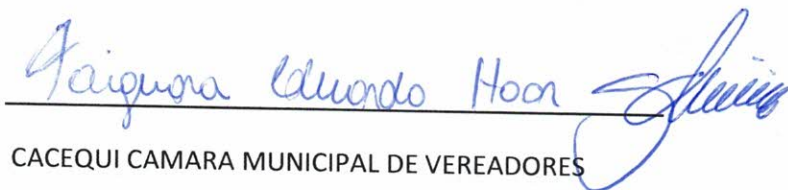 Taiguara Eduardo Haar
CACEQUI CAMARA MUNICIPAL DE VEREADORES